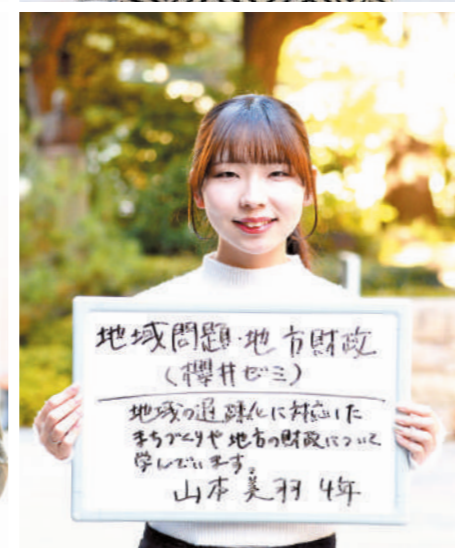 地域問題・地方財政
(櫻井ゼミ)
地域の過疎化に対応した
まちづくりや地方の財政について
学んでいます。
山本美羽 4年